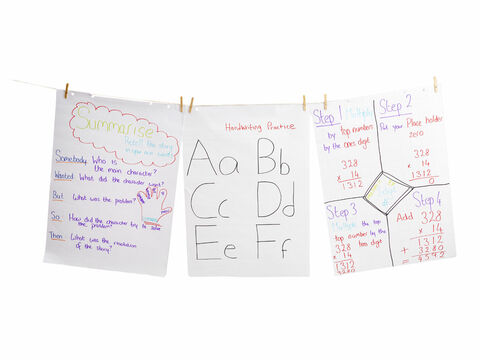 Summarise
Retell the story
in your own words
Somebody Who is
the main character?
Wanted What did the character want?
But What was the problem?
So How did the character try to solve
the problem?
Then What was the resolution
of the story?
Handwriting Practice
Aa Bb
Cc Dd
Ee Ff
Step 1 Multiply
by top numbers
by the ones digit
328
x 14
1312
Step 2
Put your Place holder
zero
328
x 14
1312
0
Step 3
Multiply the top
top number by the
tens digit
328
x 14
1312
3280
Step 4
Add 328
x 14
1312
+ 3280
= 4592